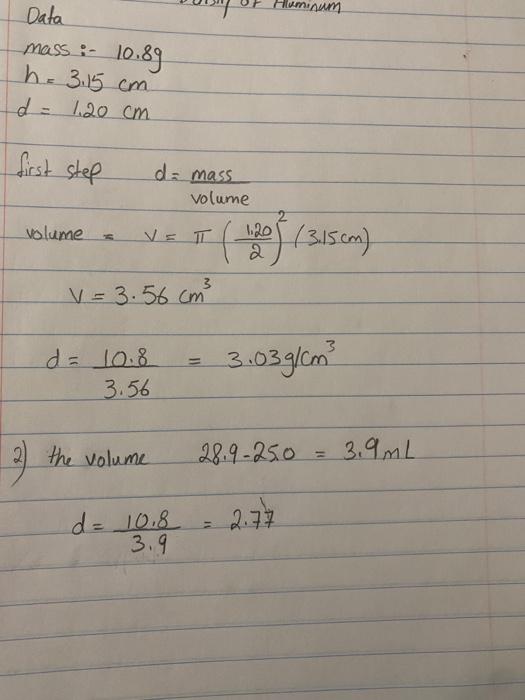 of Aluminum
Data
mass :- 10.8g
h = 3.15 cm
d = 1.20 cm
first step d = mass / volume
volume = V = π (1.20/2)² (3.15cm)
V = 3.56 cm³
d = 10.8 / 3.56 = 3.03g/cm³
2) the volume 28.9-25.0 = 3.9mL
d = 10.8 / 3.9 = 2.77